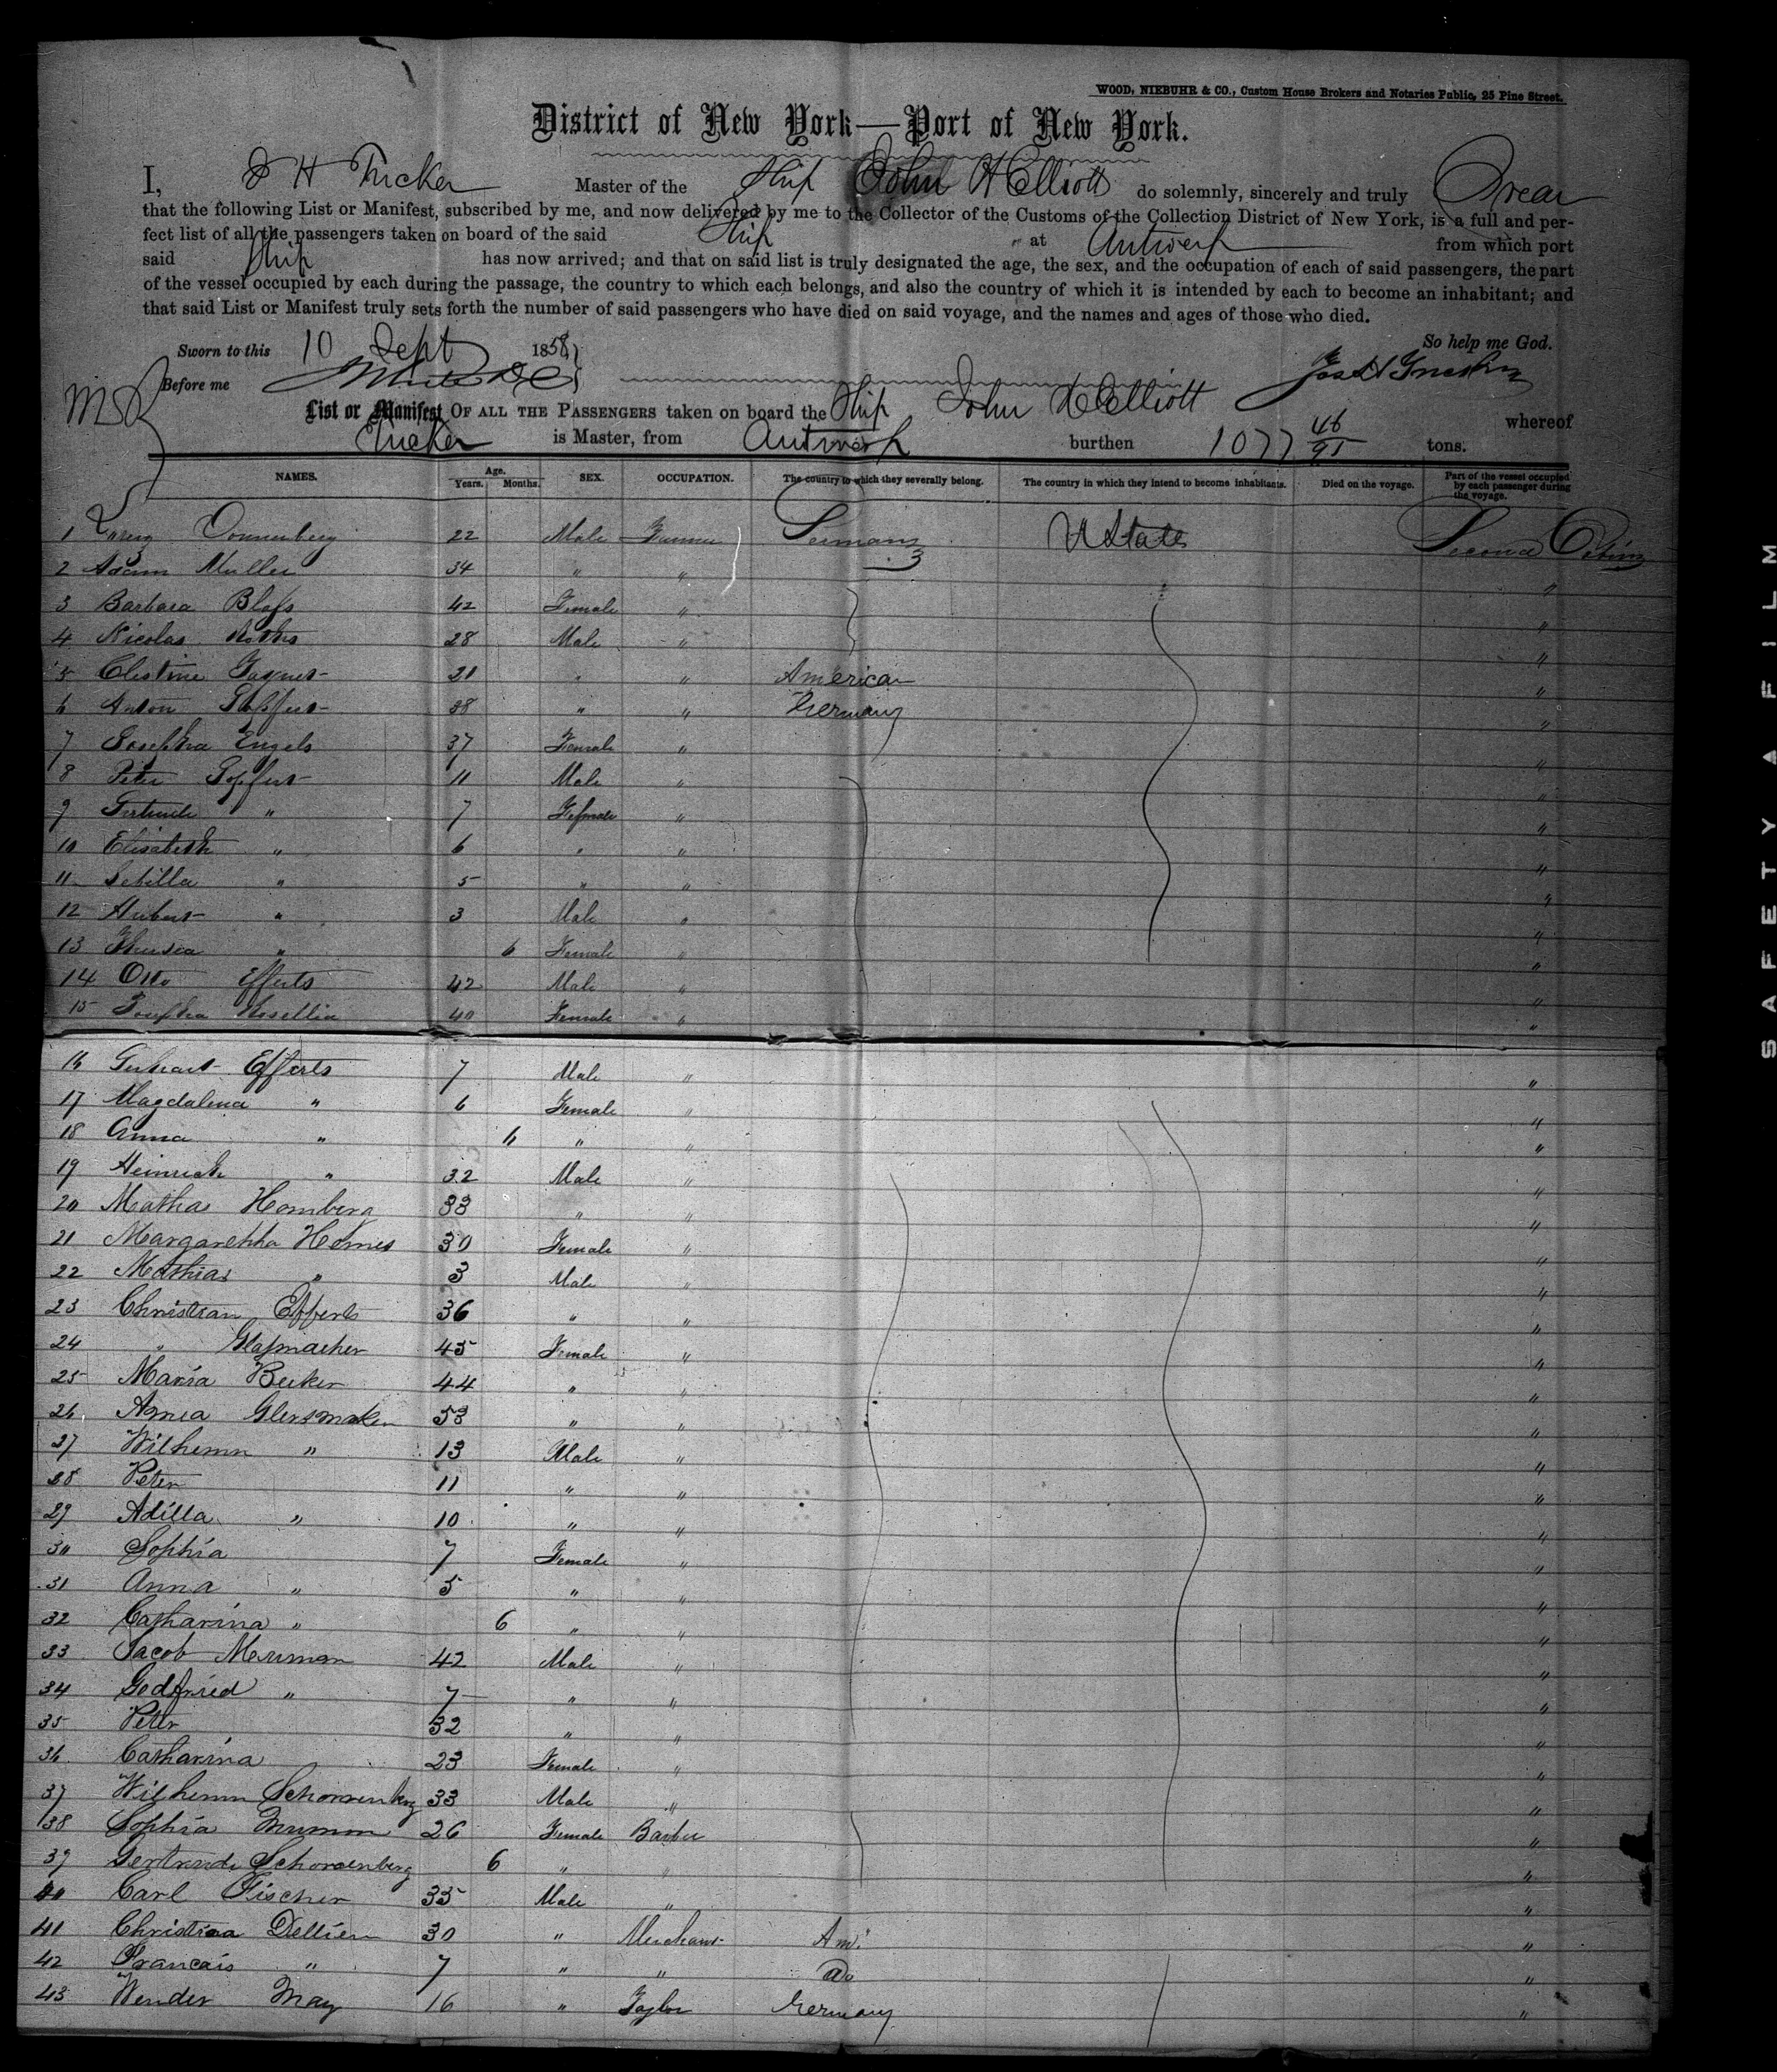 WOOD, NIEBUHR & CO., Custom House Brokers and Notaries Public, 25 Pine Street.
District of New York—Port of New York.
I, J H Tucker Master of the Ship John H Elliott do solemnly, sincerely and truly Swear
that the following List or Manifest, subscribed by me, and now delivered by me to the Collector of the Customs of the Collection District of New York, is a full and per-
fect list of all the passengers taken on board of the said Ship at Antwerp from which port
said Ship has now arrived; and that on said list is truly designated the age, the sex, and the occupation of each of said passengers, the part
of the vessel occupied by each during the passage, the country to which each belongs, and also the country of which it is intended by each to become an inhabitant; and
that said List or Manifest truly sets forth the number of said passengers who have died on said voyage, and the names and ages of those who died.
Sworn to this 10 Sept 1858 So help me God.
Before me
List or Manifest OF ALL THE PASSENGERS taken on board the Ship John H Elliott whereof
Tucker is Master, from Antwerp burthen 1077 46/95 tons.
NAMES. Age. Years. Months. SEX. OCCUPATION. The country to which they severally belong. The country in which they intend to become inhabitants. Died on the voyage. Part of the vessel occupied by each passenger during the voyage.
1 22 Male Farmer Germany U States Second Cabin
2 Adam Muller 34 " " "
3 Barbara Blass 42 Female " "
4 Nicolas 28 Male " "
5 Clestine 21 " " American "
6 Anton 38 " " Germany "
7 Josepha Engels 37 Female " "
8 Peter 11 Male " "
9 Gertrude " 7 Female " "
10 Elisabeth " 6 " " "
11 Sebilla " 5 " " "
12 Hubert " 3 Male " "
13 " 6 Female " "
14 Otto Efferts 42 Male " "
15 Josepha 40 Female " "
16 Gerhart Efferts 7 Male " "
17 Magdalena " 6 Female " "
18 Anna " 6 " " "
19 Heinrich " 32 Male " "
20 Mathas Homberg 33 " " "
21 Margarethha Homes 30 Female " "
22 Mathias " 3 Male " "
23 Christian Efferts 36 " " "
24 " Glasmacher 45 Female " "
25 Maria Becker 44 " " "
26 Glersmaken 58 " " "
27 Wilhemn " 13 Male " "
28 Peter 11 " " "
29 Adilla " 10 " " "
30 Sophia 7 Female " "
31 Anna " 5 " " "
32 Catharina " 6 " " "
33 Jacob Merrman 42 Male " "
34 Godfried " 7 " " "
35 Peter 32 " " "
36 Catharina 23 Female " "
37 Wilhemn Schorrenberg 33 Male " "
38 Sophia 26 Female Barber "
39 Gertrude Schorrenberg 6 " " "
40 Carl Fischer 35 Male " "
41 Christina Dellien 30 " Merchant Am. "
42 Francais " 7 " " Do "
43 Wender May 16 " Taylor Germany "
SAFETY A FILM